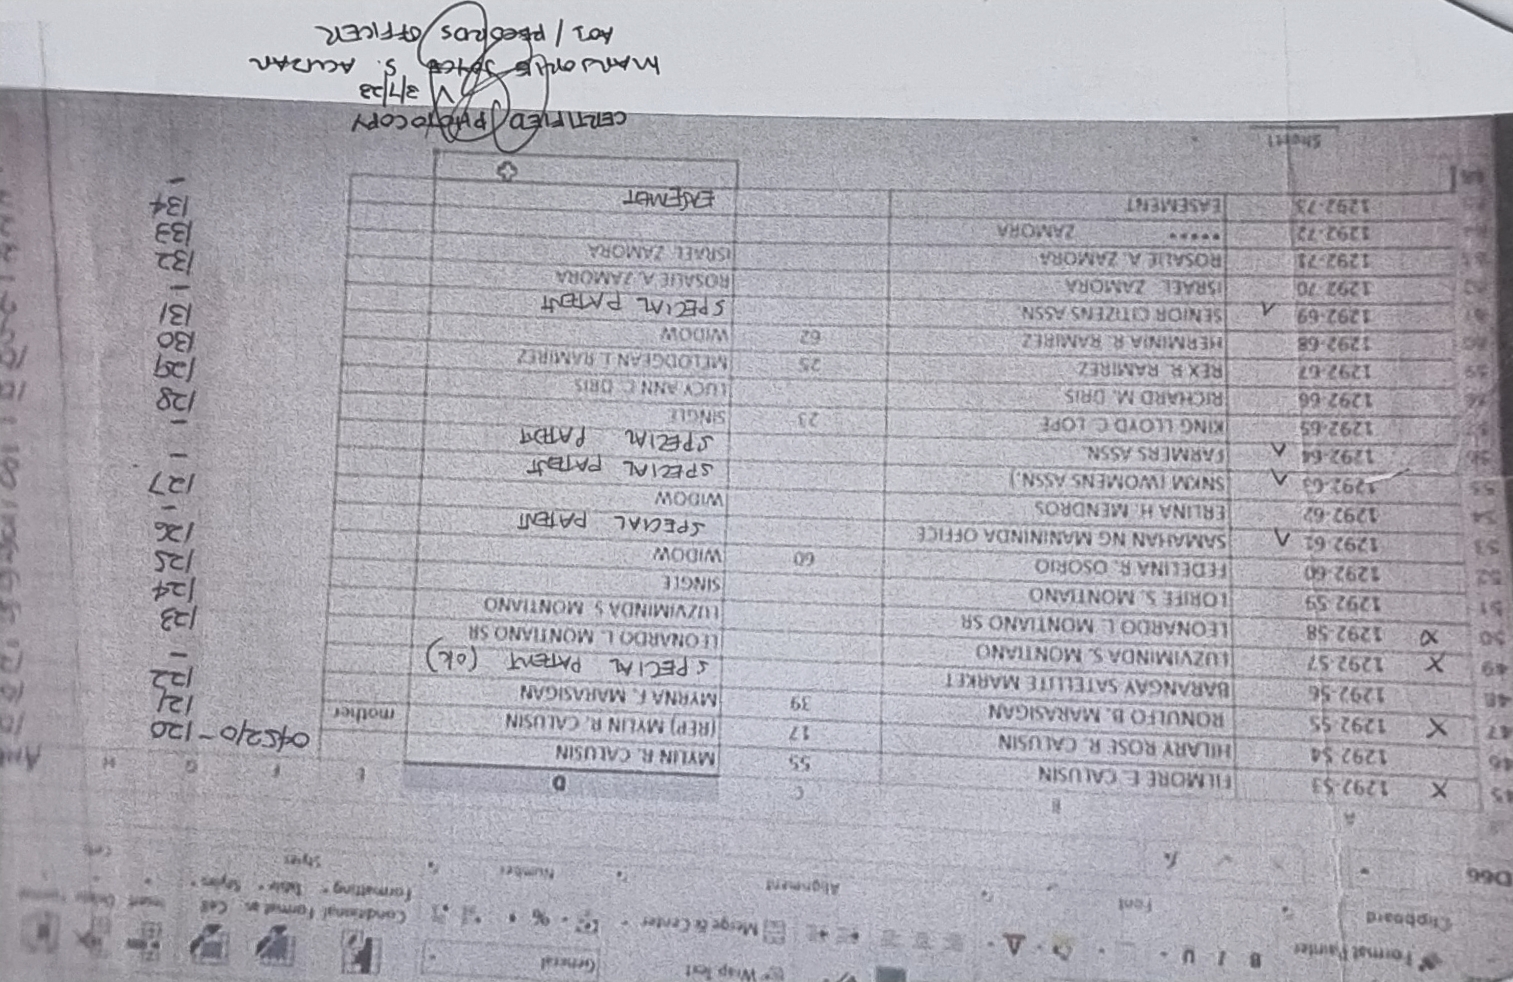 Format Painter
Clipboard
B I U
Font
Wrap Text
Merge & Center
Alignment
General
Number
Conditional Formatting
Format as Table
Cell Styles
Styles
Insert
Delete
Format
Cells
D66
fx
A B C D E F G H
45 X 1292-53 FILMORE E. CALUSIN 55 MYLIN R. CALUSIN 045210-120
46 1292-54 HILARY ROSE R. CALUSIN 17 (REP) MYLIN R. CALUSIN mother 121
47 X 1292-55 RONULFO B. MARASIGAN 39 MYRNA F. MARASIGAN 122
48 1292-56 BARANGAY SATELLITE MARKET SPECIAL PATENT (OK) -
49 X 1292-57 LUZVIMINDA S. MONTIANO LEONARDO L. MONTIANO SR 123
50 1292-58 LEONARDO L. MONTIANO SR LUZVIMINDA S MONTIANO 124
51 1292-59 LORIFE S. MONTIANO SINGLE 125
52 1292-60 FEDELINA R. OSORIO 60 WIDOW 126
53 1292-61 SAMAHAN NG MANININDA OFFICE SPECIAL PATENT -
54 1292-62 ERLINA H. MENDROS WIDOW 127
55 1292-63 SNKM (WOMENS ASSN.) SPECIAL PATENT -
56 1292-64 FARMERS ASSN. SPECIAL PATENT -
1292-65 KING LLOYD C. LOPE 23 SINGLE 128
1292-66 RICHARD M. DRIS LUCY ANN C. DRIS 129
59 1292-67 REX R. RAMIREZ 25 MELODGEAN J. RAMIREZ 130
60 1292-68 HERMINIA R. RAMIREZ 62 WIDOW 131
61 1292-69 SENIOR CITIZENS ASSN. SPECIAL PATENT -
1292-70 ISRAEL ZAMORA ROSALIE A. ZAMORA 132
1292-71 ROSALIE A. ZAMORA ISRAEL ZAMORA 133
1292-72 ***** ZAMORA 134
1292-73 EASEMENT EASEMENT -
Sheet1
CERTIFIED PHOTOCOPY
3/7/23
MARJORIE JOYCE S. ACUZAR
AO1 / RECORDS OFFICER